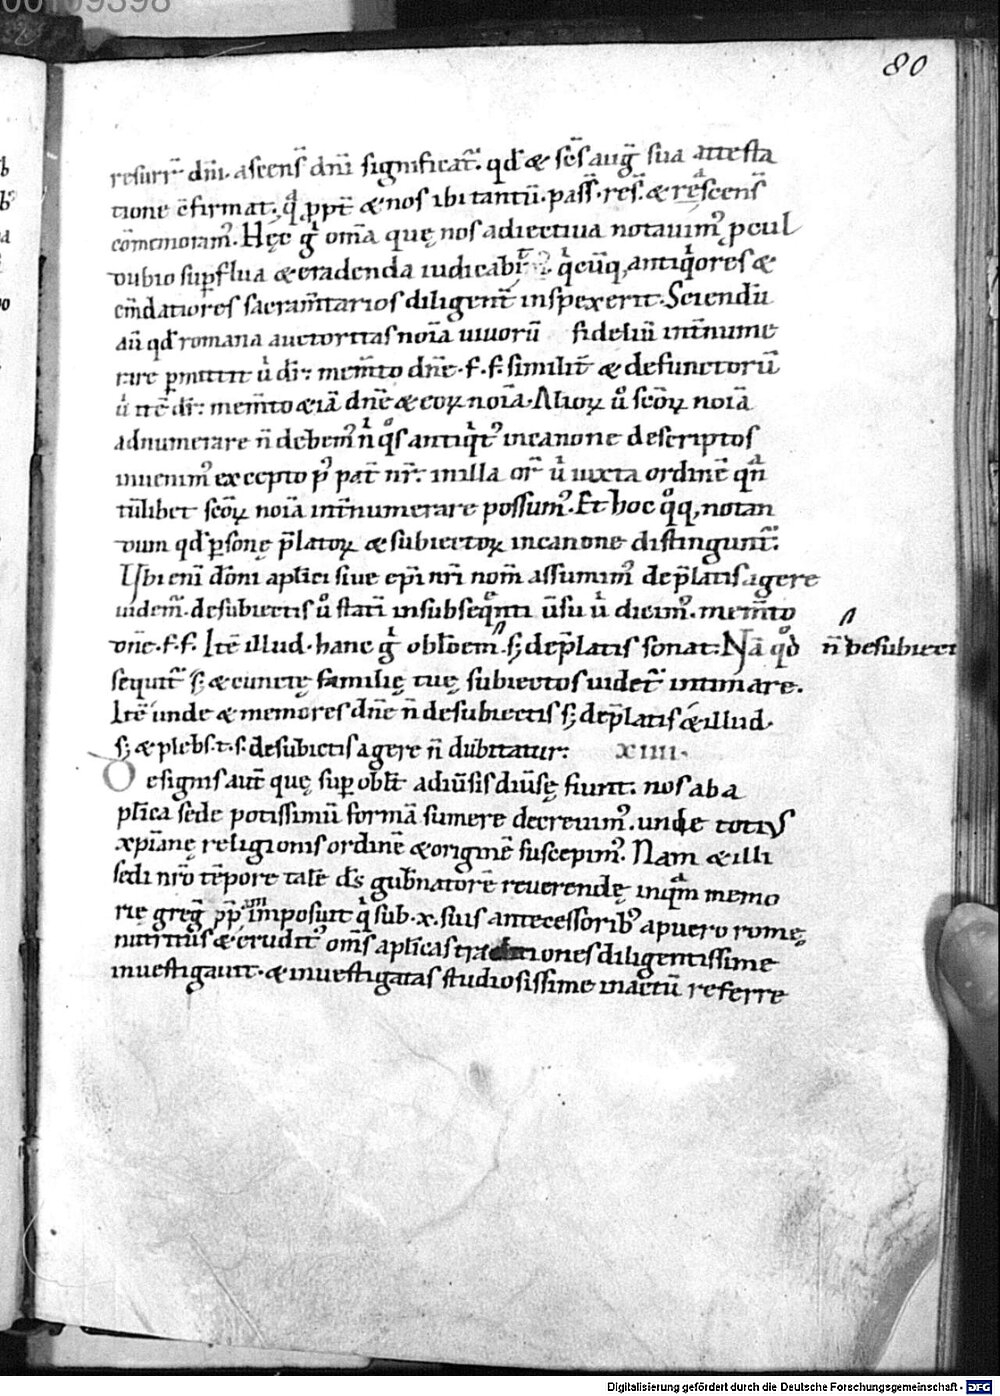 80
resurr̄ dn̄i. ascens̄ dn̄i significat̄. qd̄ & sc̄s aug̅ sua attesta
tione c̄firmat. q̄ ꝓpt̄ & nos ibi tantū. pass̄. res̄. & rescens̄
cōmemoramꝰ. Hęc gͥ om̄a quę nos adiectiua notauimꝰ ꝓcul
dubio suꝑflua & eradenda iudicabit qͥcūq, antiqͥores &
em̄datiores sacram̄tarios diligent̄ inspexerit. Sciendū
aū qd̄ romana auctoritas noīa uiuorū fideliū int̄nume
rare ꝑmittit uͥ dr̄: mem̄to dn̄e. f. f. similit̄ & defunctorū
uͥ itē dr̄: mem̄to &iā dn̄e & eoꝝ noīa. Alioꝝ uͦ scōꝝ noīa
adnumerare n̄ debemꝰ nͥ qͦs antiqͥtꝰ incanone descriptos
inuenimꝰ excepto pꝰ pat̄ nr̄. inilla or̄ uͥ iuxta ordinē qn̄
tūlibet scōꝝ noīa int̄numerare possumꝰ. Et hoc qͦq, notan
dum qd̄ ꝑsonę p̄latoꝝ & subiectoꝝ incanone distingunt̄.
Ubi enī dōni aplīci siue epī nr̄i nom̄ assumimꝰ de p̄latis agere
uidem̄. desubiectis uͦ statī insubseqͣnti ūsu uͥ dicimꝰ. mem̄to
dn̄e. f. f. Itē illud. hanc gͥ oblōem. sꝫ de p̄latis sonat: Nā qͦd n̄ desubiecti
sequit̄ sꝫ & cunctę familię tuę subiectos uidet̄ intimare.
Itē unde & memores dn̄e n̄ desubiectis sꝫ dep̄latis & illud.
sꝫ & plebs. t. s. desubiectis agere n̄ dubitatur: xiiii.
De signis autē quę suꝑ oblat̄ adiūsis diūsę fiunt. nos aba
plīca sede potissimū formā sumere decreuimꝰ. unde totius
xp̄ianę religionis ordinē & originē suscepimꝰ. Nam & illi
sedi nr̄o tēpore talē ds̄ gub̄natorē reuerendę inqͣm memo
rię greg̅ pp̄m imposuit qͥ sub. x. suis antecessoribꝰ apuero romę
nutritus & eruditꝰ om̄s aplīcas traditiones diligentissime
inuestigauit. & inuestigatas studiosissime inactū referre
Digitalisierung gefördert durch die Deutsche Forschungsgemeinschaft - DFG